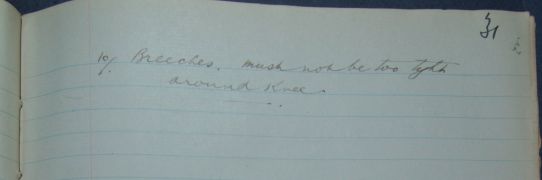 31
10/. Breeches. must not be too tight
around Knee.